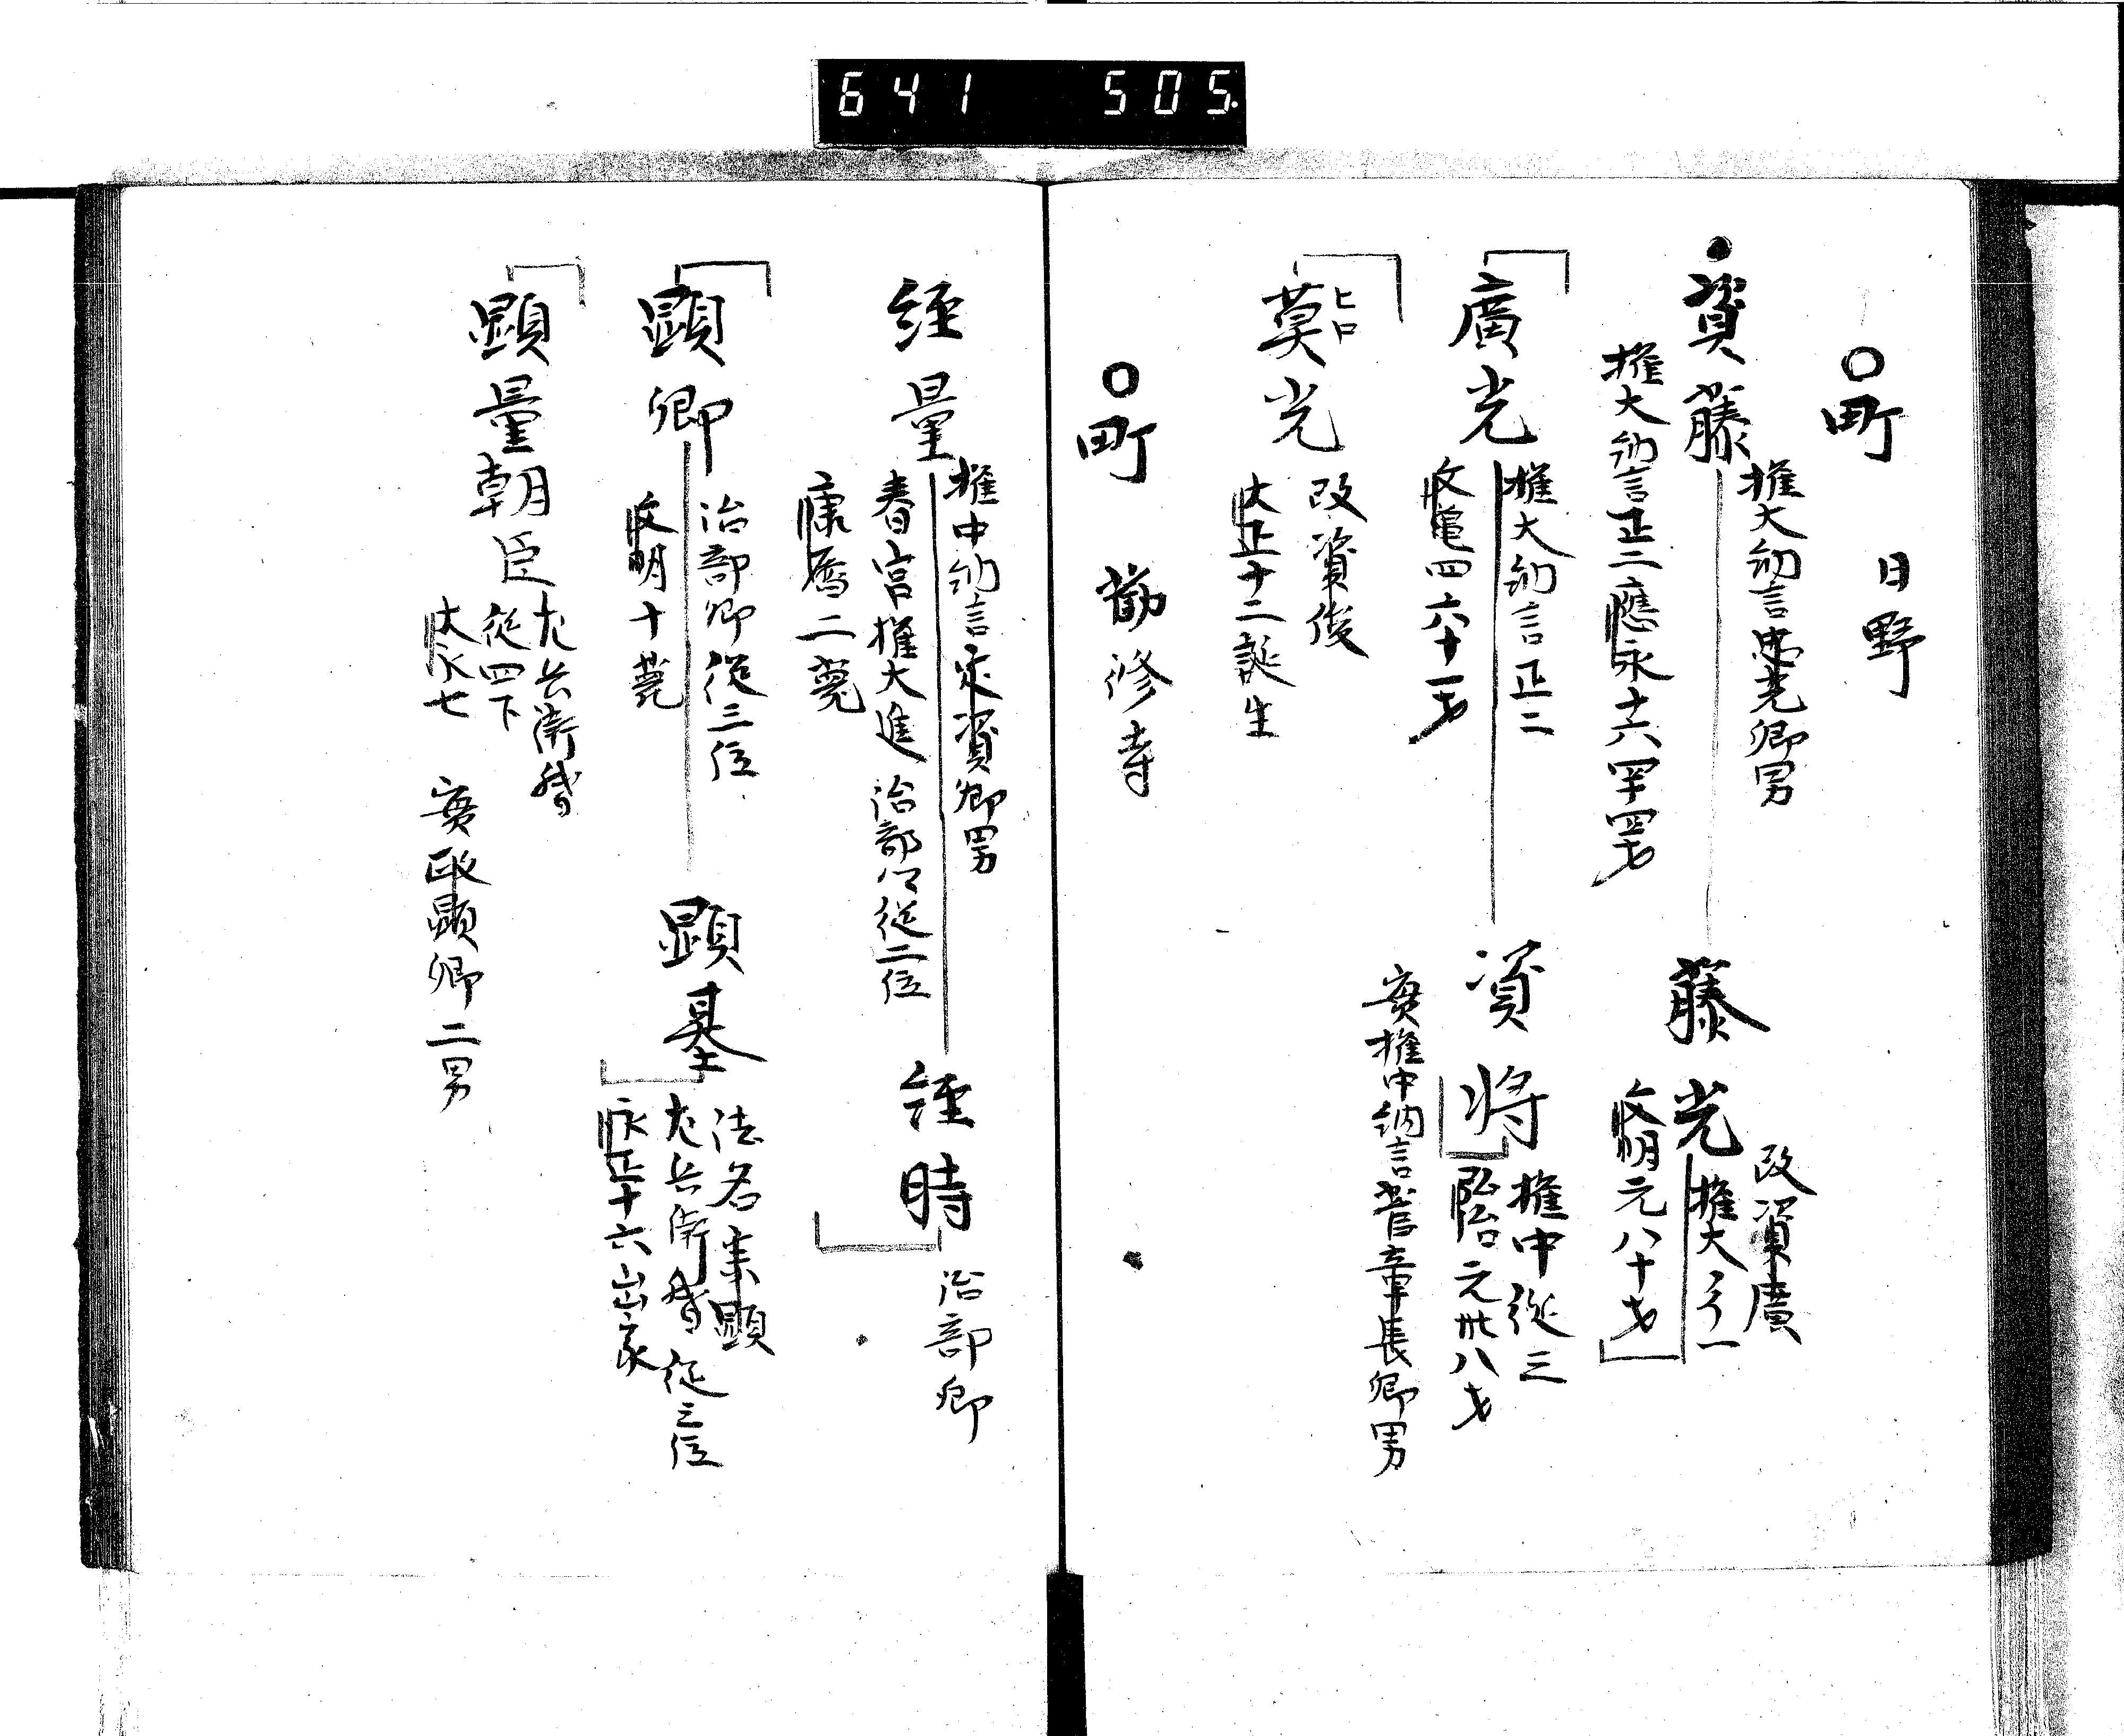 641 505.
〇町 日野
資藤
権大納言忠光卿男
権大納言正二應永十六六四十四才
藤光
改資廣
権大 一
文明元八十才
廣光
権大納言正二
文亀四六十一才
資将
権中従三
弘治元卅八才
實権中納言菅章長卿男
莫光
改資俊
大正十二誕生
〇町 勧修寺
経量
権中納言定資卿男
春宮権大進 治部卿従二位
康應二薨
経時
治部卿
顕卿
治部卿従三位
文明十薨
顕基
法名 顕
左兵衛督従三位
永正十六出家
顕量朝臣
左兵衛督
従四下
大永七
實 顕卿二男